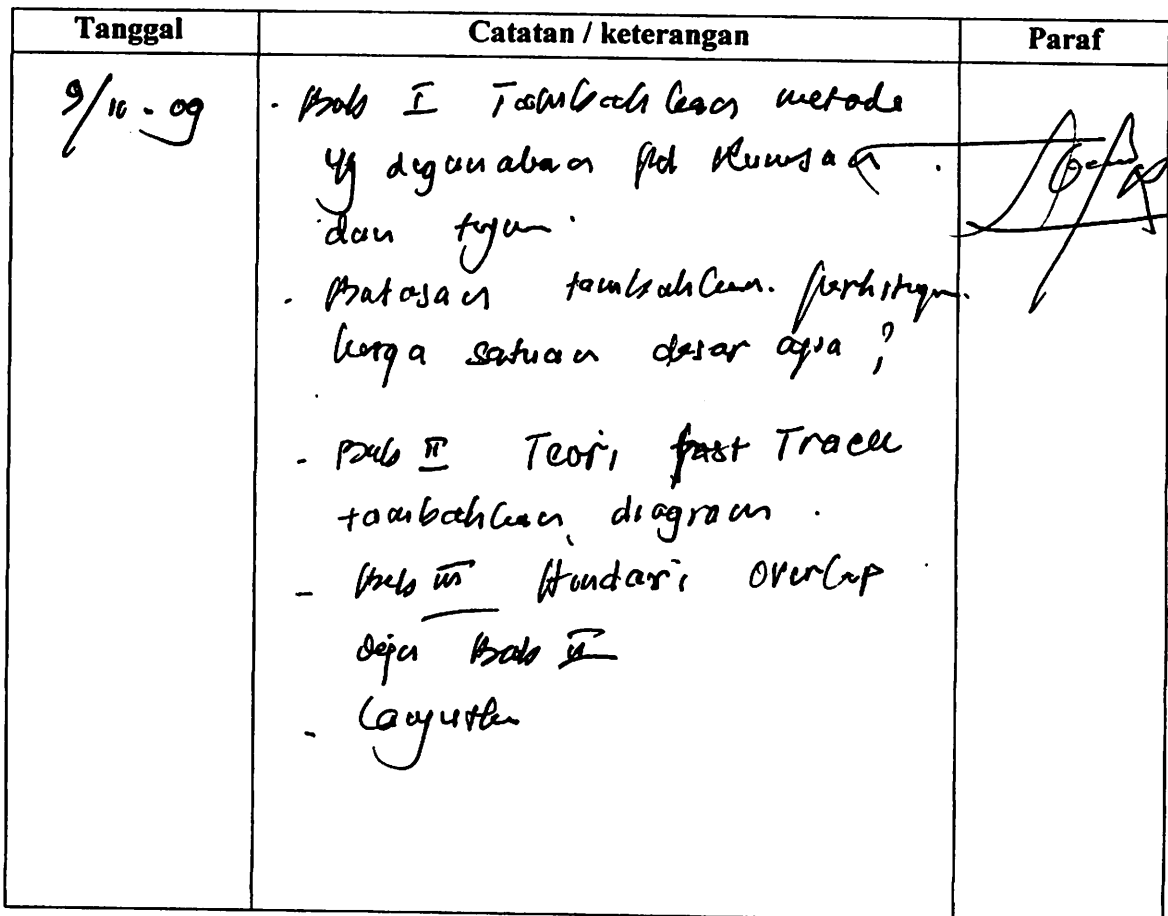 Tanggal Catatan / keterangan Paraf
9/10 - 09 - Bab I Tambahkan metode
yg digunakan pd Rumusan
dan tujuan.
- Batasan tambahkan perhitungan
harga satuan dasar apa?
- Bab II Teori fast Track
tambahkan diagram.
- Bab III Hindari overlap
dengan Bab II
- Lanjutkan